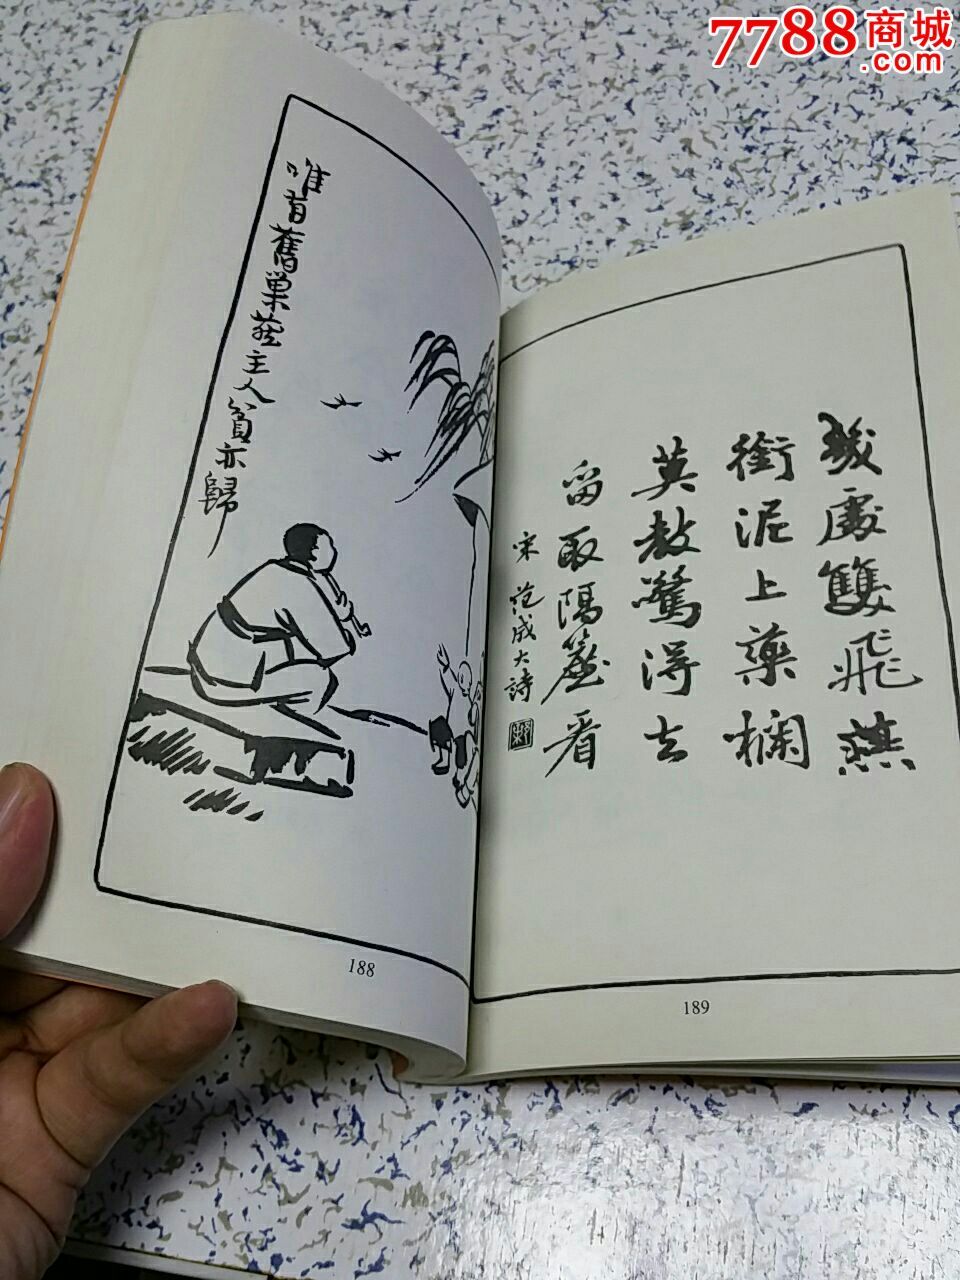 7788商城
.com
唯有舊巢燕主人貧亦歸
188
幾處雙飛燕
銜泥上藥欄
莫教驚得去
留取隔簾看
宋 范成大詩
189